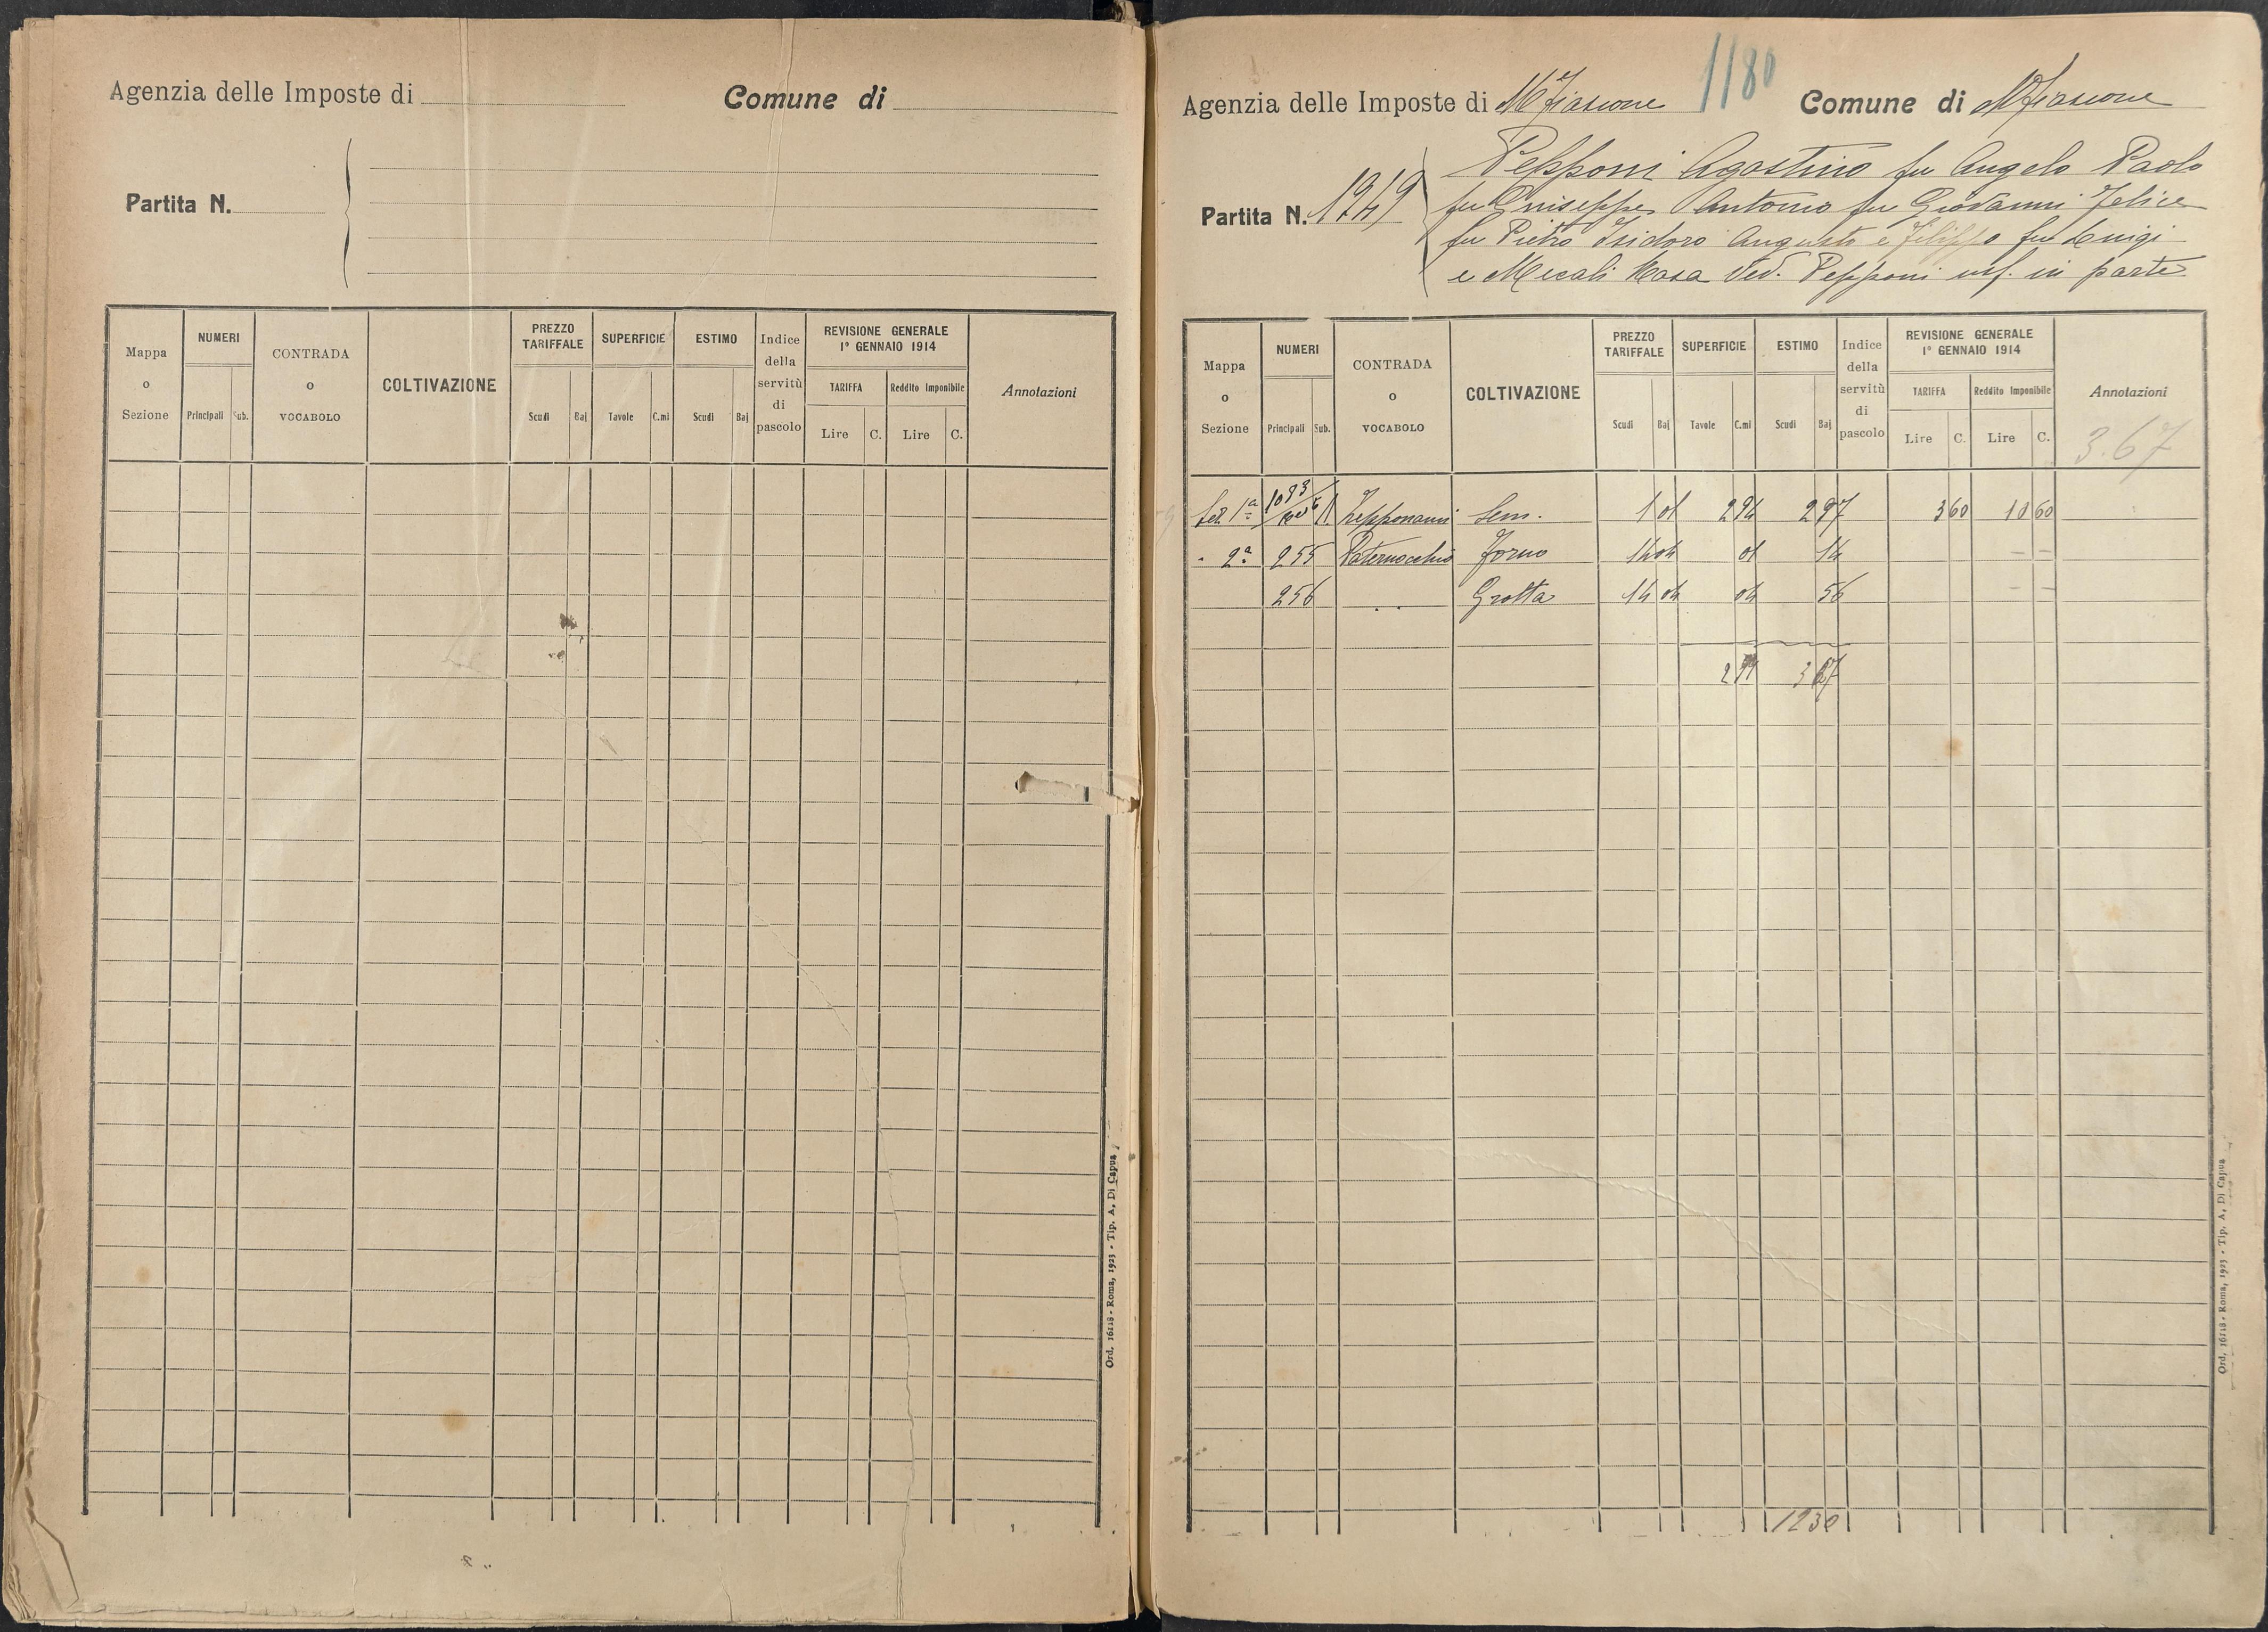 Agenzia delle Imposte di
Comune di
Partita N.
Mappa o Sezione
NUMERI
Principali
Sub.
CONTRADA o VOCABOLO
COLTIVAZIONE
PREZZO TARIFFALE
Scudi
Baj
SUPERFICIE
Tavole
C.mi
ESTIMO
Scudi
Baj
Indice della servitù di pascolo
REVISIONE GENERALE 1º GENNAIO 1914
TARIFFA
Lire
C.
Reddito Imponibile
Lire
C.
Annotazioni
Ord. 16118 - Roma, 1923 - Tip. A. Di Capua
1180
Agenzia delle Imposte di Mfiascone
Comune di Mfiascone
Partita N. 1949
Pepponi Agostino fu Angelo Paolo
fu Giuseppe, Antonio fu Giovanni Felice
fu Pietro Isidoro Augusto e Filippo fu Luigi
e Mecali Rosa ved. Pepponi usf. in parte
Mappa o Sezione
NUMERI
Principali
Sub.
CONTRADA o VOCABOLO
COLTIVAZIONE
PREZZO TARIFFALE
Scudi
Baj
SUPERFICIE
Tavole
C.mi
ESTIMO
Scudi
Baj
Indice della servitù di pascolo
REVISIONE GENERALE 1º GENNAIO 1914
TARIFFA
Lire
C.
Reddito Imponibile
Lire
C.
Annotazioni
3.67
Sez 1ª Zepponami Sem. 1 01 2 94 2 97 3 60 10 60
" 2ª 255 Paternocchio Forno 14 04 01 14 — —
256 " " Grotta 14 04 04 56 — —
2 99 3 67
1230
Ord. 16118 - Roma, 1923 - Tip. A. Di Capua